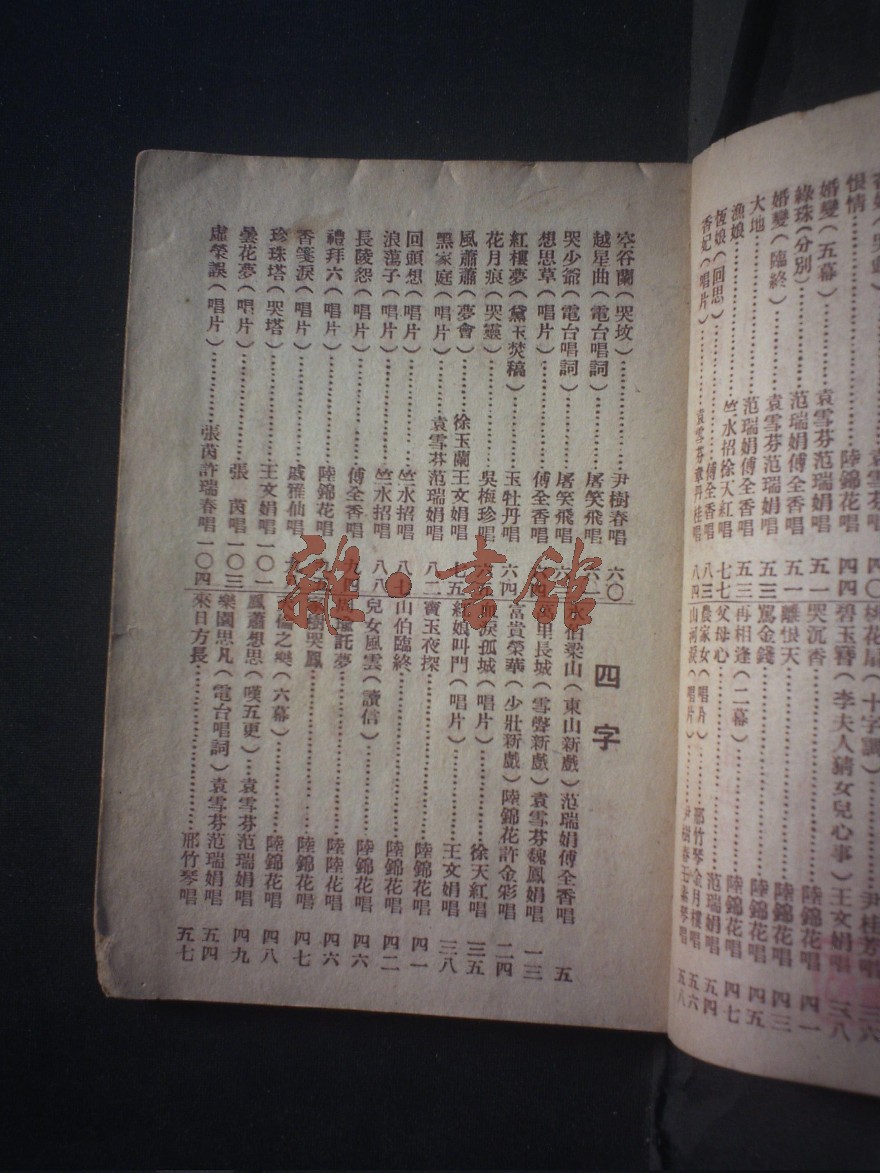 恨情………陸錦花唱 四四
婚變(五幕)………袁雪芬范瑞娟唱 五一
綠珠(分別)………范瑞娟傅全香唱 五一
婚變(臨終)………袁雪芬范瑞娟唱 五三
大地………范瑞娟傅全香唱 五三
漁娘………竺水招徐天紅唱 七七
恆娘(回思)………傅全香唱 八三
香妃(唱片)………袁雪芬章丹桂唱 八四
桃花扇(十字調)………尹桂芳唱 三六
碧玉簪(李夫人猜女兒心事)王文娟唱 三八
哭沉香………陸錦花唱 四一
離恨天………陸錦花唱 四三
罵金錢………陸錦花唱 四五
再相逢(二幕)………陸錦花唱 四七
父母心………范瑞娟唱 五四
農家女(唱片)………邢竹琴金月樓唱 五六
山河淚(唱片)………尹樹春王素琴唱 五八
空谷蘭(哭坟)………尹樹春唱 六〇
越星曲(電台唱詞)………屠笑飛唱 六一
哭少爺(電台唱詞)………屠笑飛唱
想思草(唱片)………傅全香唱
紅樓夢(黛玉焚稿)………玉牡丹唱 六四
花月痕(哭靈)………吳梅珍唱
風蕭蕭(夢會)………徐玉蘭王文娟唱 七五
黑家庭(唱片)………袁雪芬范瑞娟唱 八二
回頭想(唱片)………竺水招唱 八七
浪蕩子(唱片)………竺水招唱 八八
長陵怨(唱片)………傅全香唱 九四
禮拜六(唱片)………陸錦花唱
香箋淚(唱片)………戚雅仙唱
珍珠塔(哭塔)………王文娟唱 一〇一
曇花夢(唱片)………張茵唱 一〇三
虛榮誤(唱片)………張茵許瑞春唱 一〇四
四字
伯梁山(東山新戲)范瑞娟傅全香唱 五
里長城(雪聲新戲)袁雪芬魏鳳娟唱 一三
富貴榮華(少壯新戲)陸錦花許金彩唱 二四
淚孤城(唱片)………徐天紅唱 三五
紅娘叫門(唱片)………王文娟唱 三八
寶玉夜探………陸錦花唱 四一
山伯臨終………陸錦花唱 四二
兒女風雲(讀信)………陸錦花唱 四六
託夢………陸陸花唱 四六
樹哭鳳………陸錦花唱 四七
倫之樂(六幕)………陸錦花唱 四八
風蕭想思(嘆五更)…袁雪芬范瑞娟唱 四九
樂園思凡(電台唱詞)袁雪芬范瑞娟唱 五四
來日方長………邢竹琴唱 五七
雜·書館